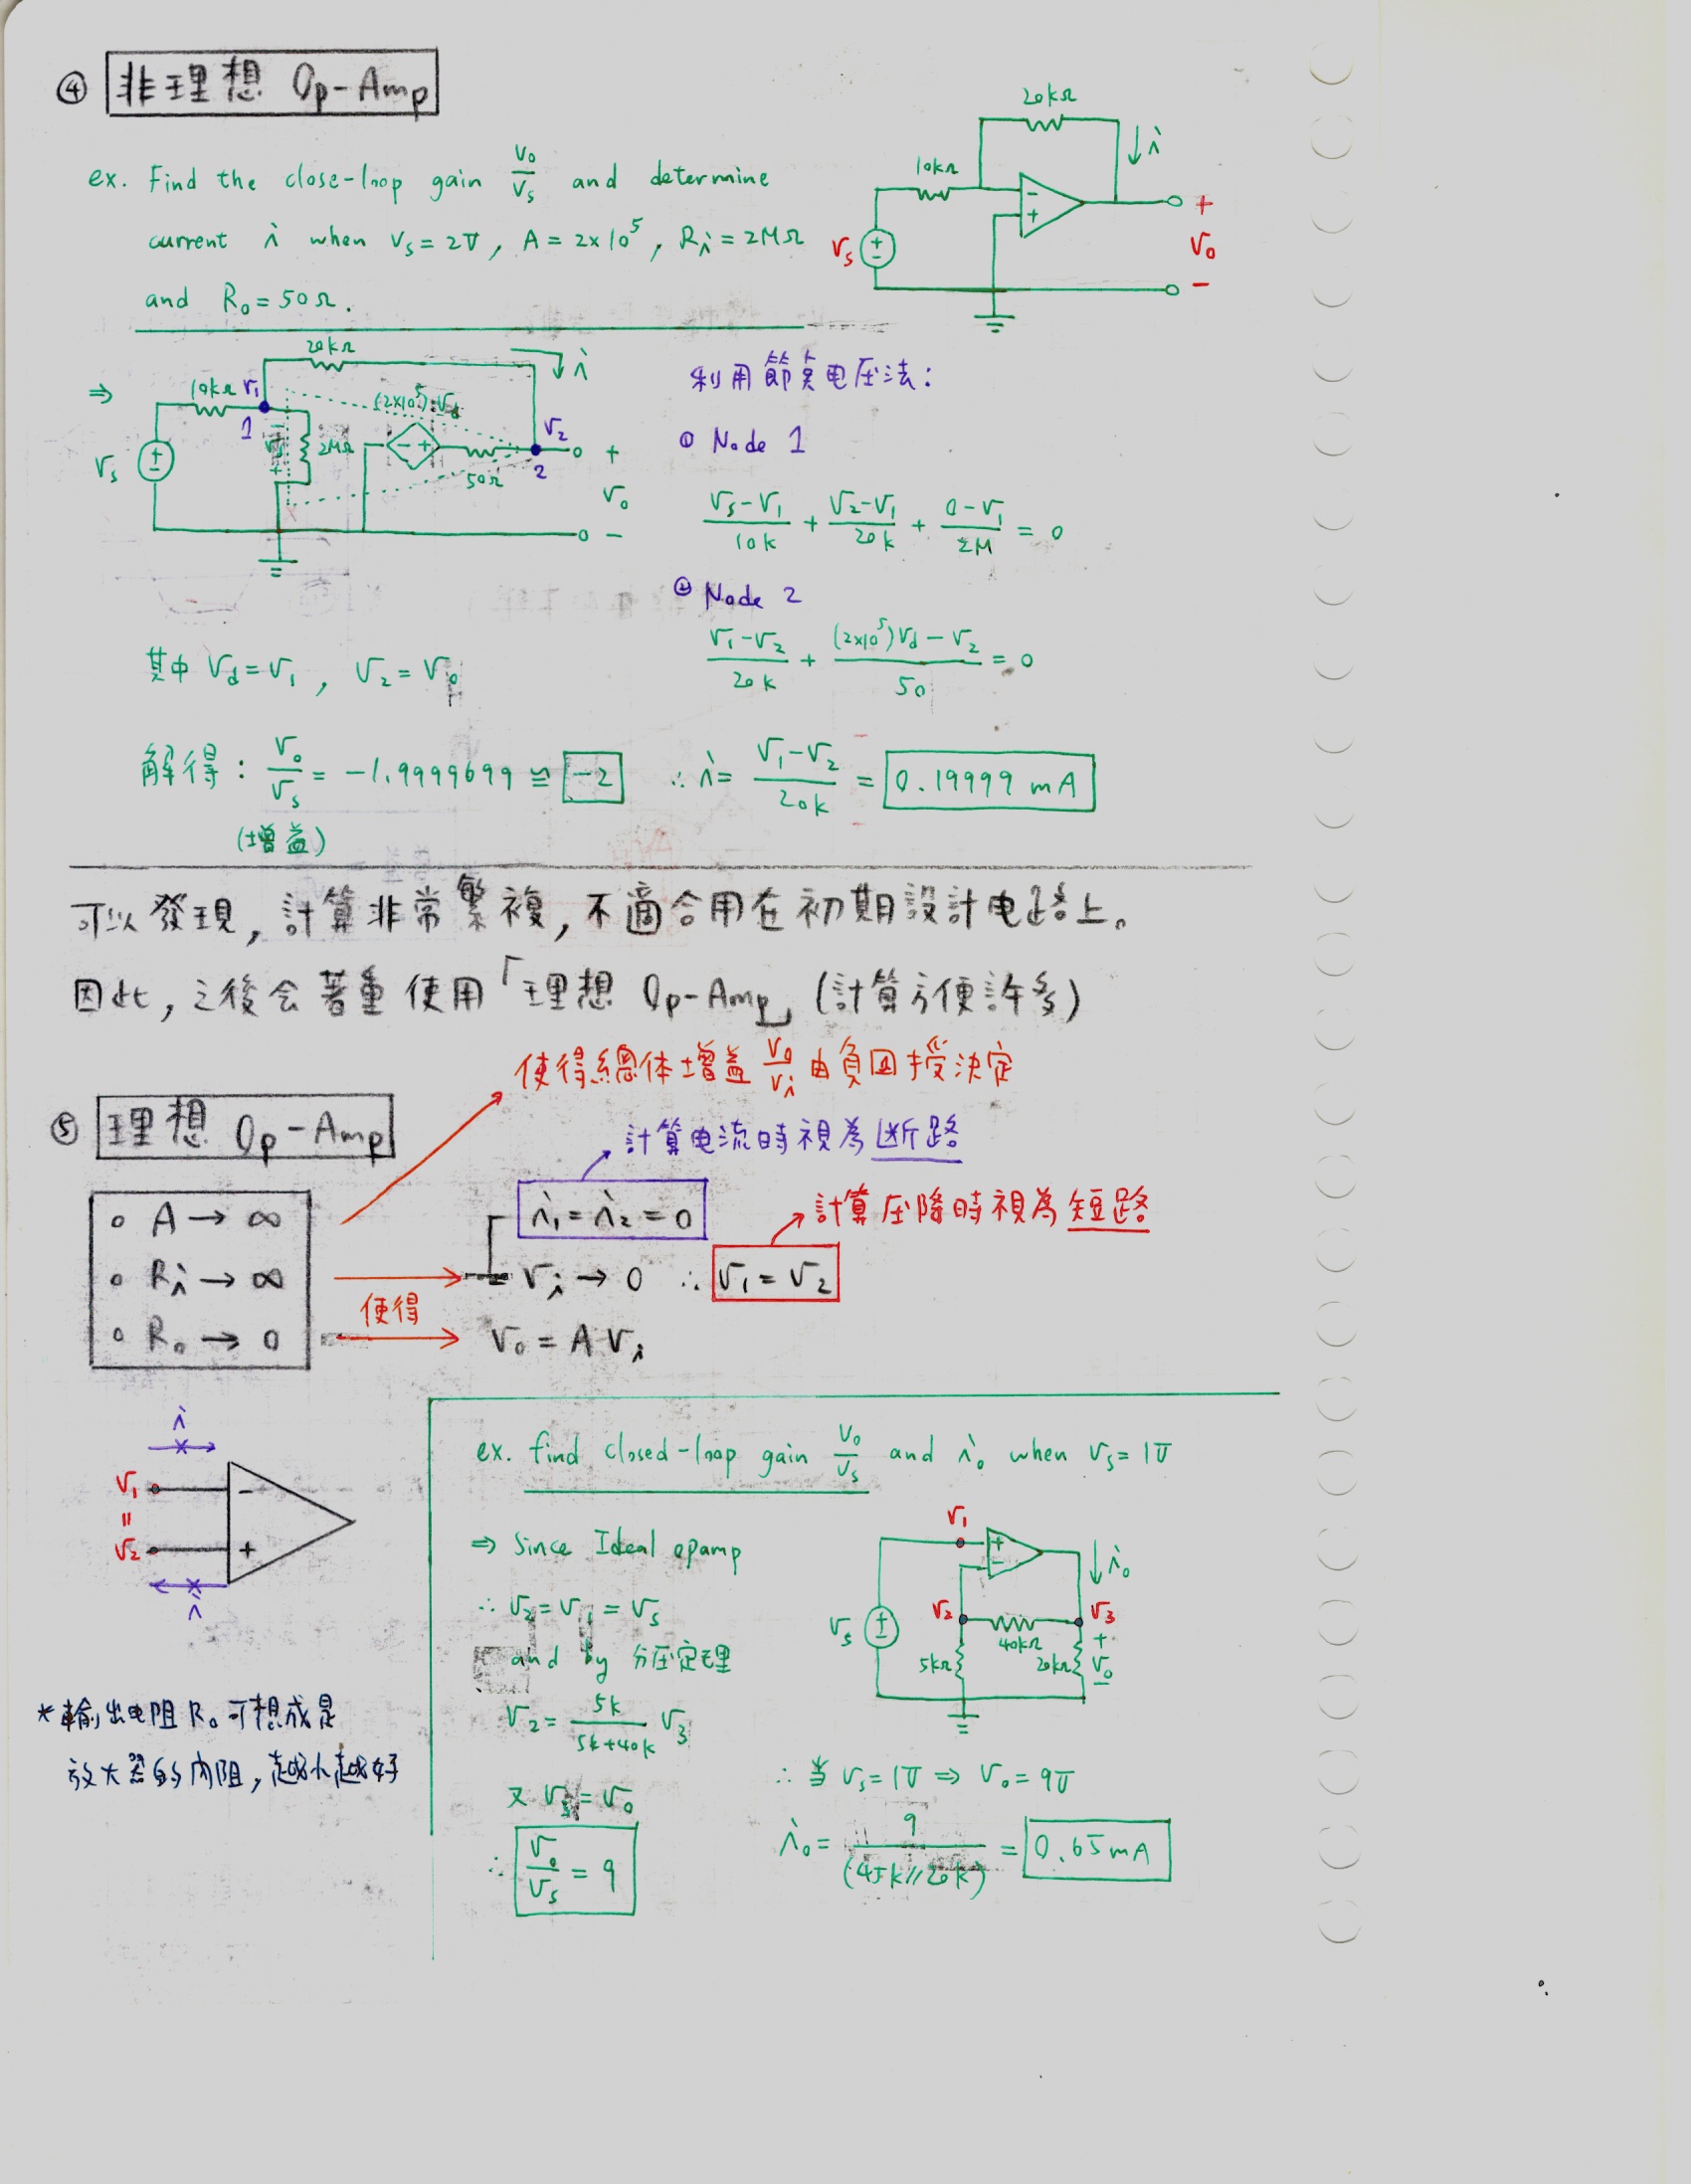 ④ 非理想 Op-Amp
ex. Find the close-loop gain Vo/Vs and determine
current i when Vs = 2V, A = 2×10^5, Ri = 2MΩ
and Ro = 50Ω.
20kΩ
10kΩ
i
Vs
+
Vo
−
⇒
20kΩ
i
10kΩ V1
1
(2×10^5)·Vd
2MΩ
50Ω
V2
2
Vs
+
Vo
−
利用節点电压法:
① Node 1
(Vs−V1)/10k + (V2−V1)/20k + (0−V1)/2M = 0
② Node 2
(V1−V2)/20k + ((2×10^5)Vd − V2)/50 = 0
其中 Vd = V1 , V2 = Vo
解得: Vo/Vs = −1.9999699 ≅ −2 ∴ i = (V1−V2)/20k = 0.19999 mA
(增益)
可以發現, 計算非常繁複, 不適合用在初期設計电路上。
因此, 之後会著重使用「理想 Op-Amp」(計算方便許多)
使得總体增益 Vo/Vi 由負回授決定
⑤ 理想 Op-Amp
計算电流時視為断路
計算压降時視為短路
○ A → ∞
○ Ri → ∞
○ Ro → 0
使得
i1 = i2 = 0
Vi → 0 ∴ V1 = V2
Vo = A Vi
i
V1
=
V2
−
+
i
*輸出电阻 Ro 可想成是
放大器的内阻, 越小越好
ex. find closed-loop gain Vo/Vs and io when Vs = 1V
⇒ Since Ideal opamp
∴ V2 = V1 = Vs
and by 分压定理
V2 = 5k/(5k+40k) V3
又 V3 = Vo
∴ Vo/Vs = 9
V1
+
−
io
V2
V3
40kΩ
Vs
5kΩ
20kΩ
+
Vo
−
∴ 当 Vs = 1V ⇒ Vo = 9V
io = 9/(45k//20k) = 0.65mA